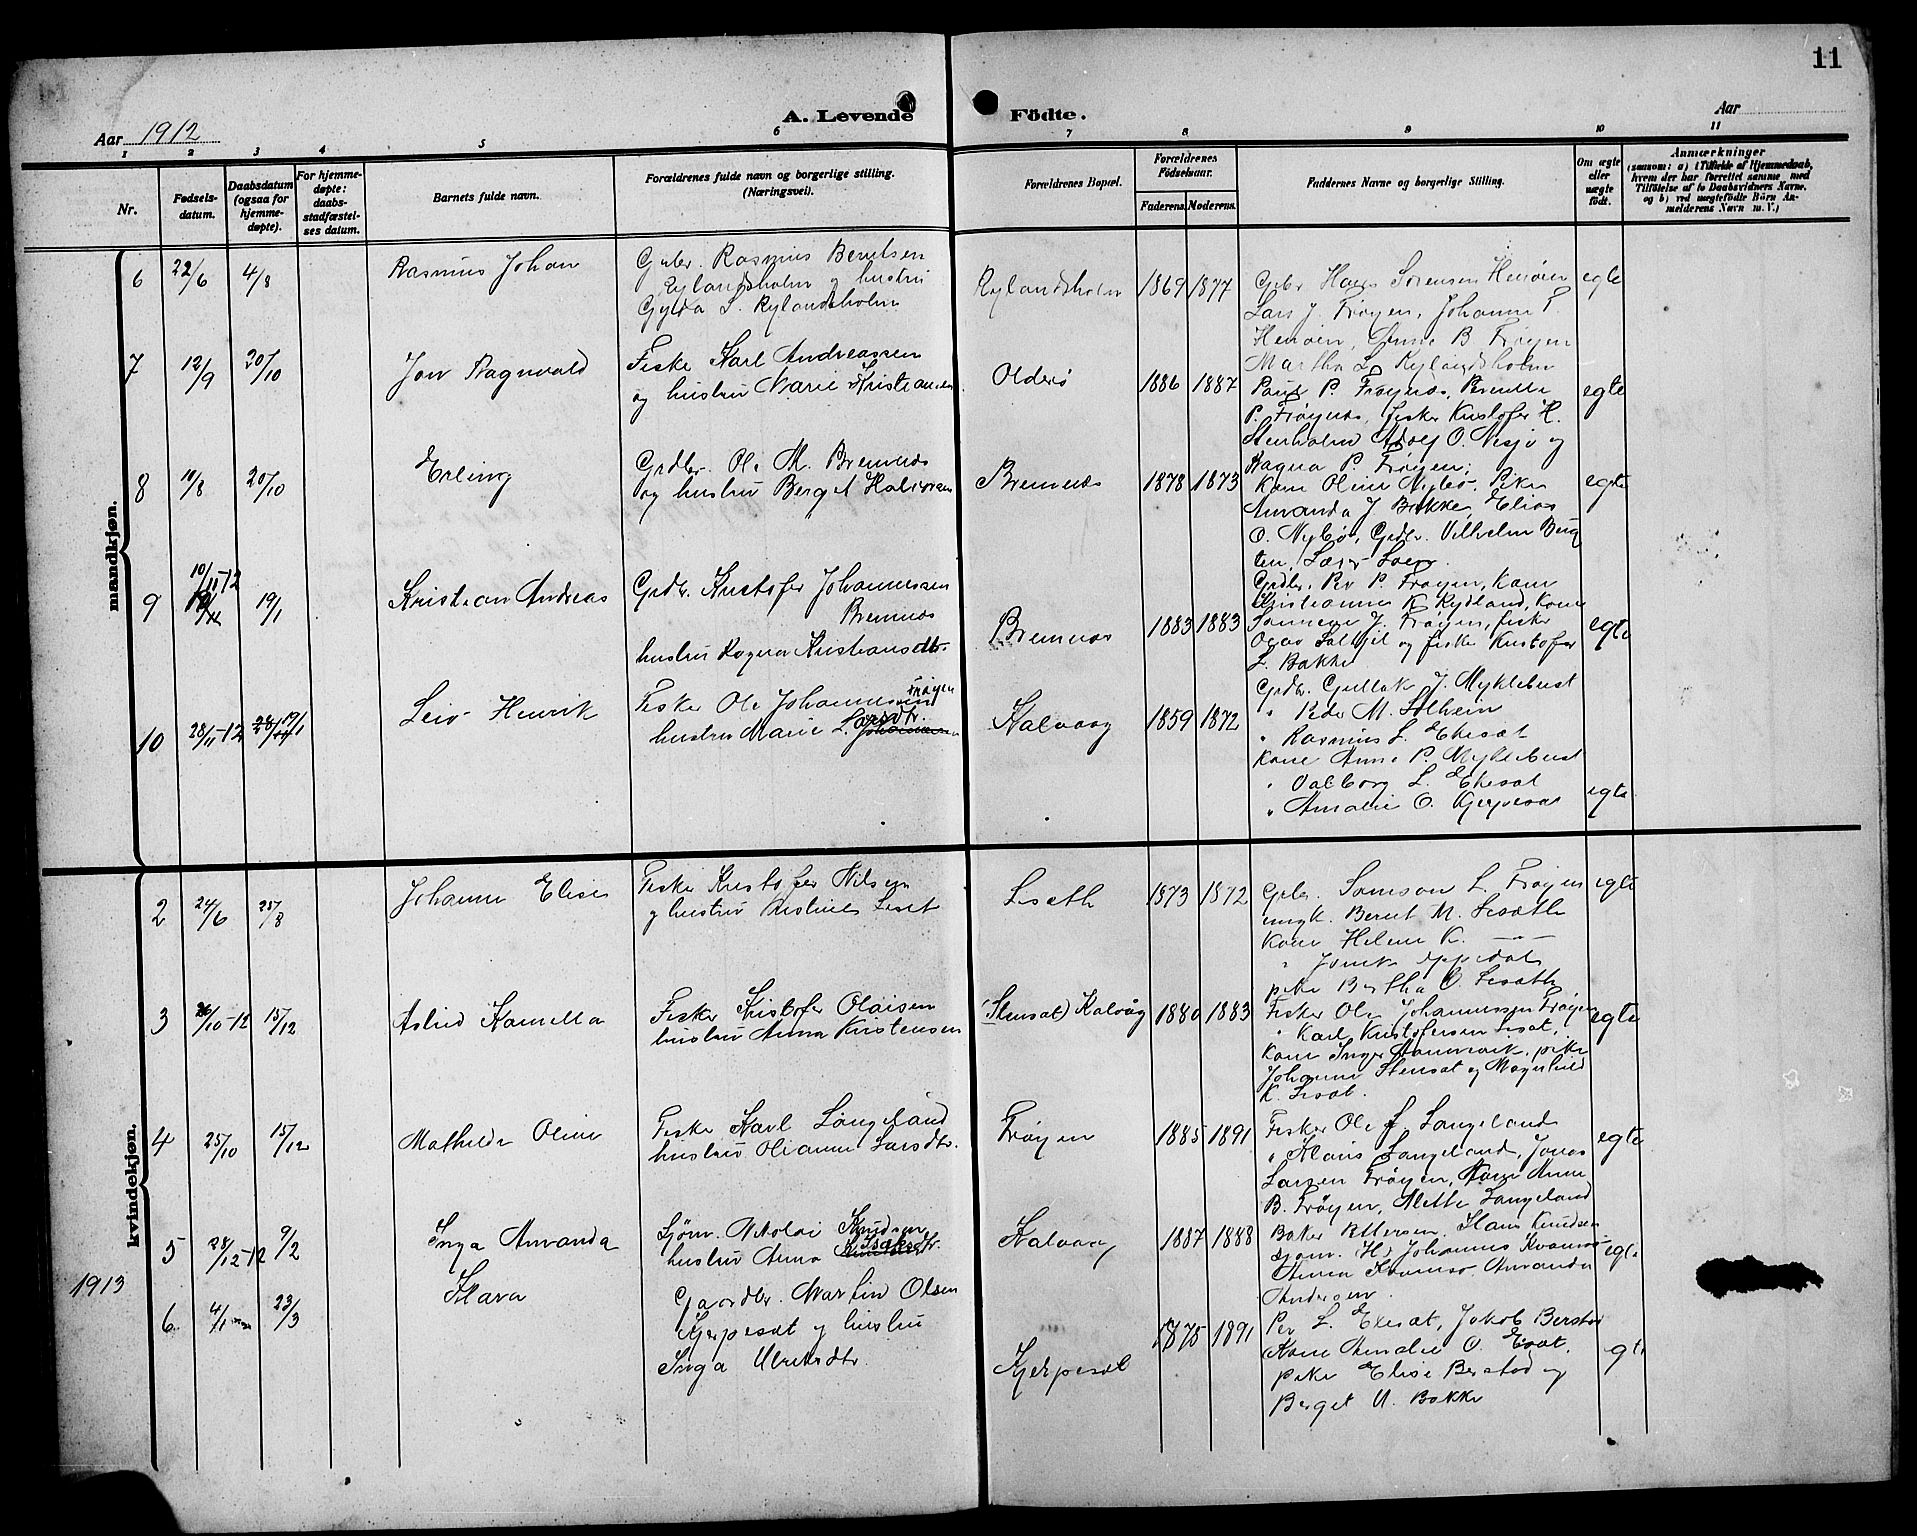 11
A. Levende Födte.
Aar 1912
Aar
1 2 3 4 5 6 7 8 9 10 11
Nr.
Fødsels-
datum.
Daabsdatum
(ogsaa for
hjemme-
døpte).
For hjemme-
døpte:
daabs-
stadfæstel-
ses datum.
Barnets fulde navn.
Forældrenes fulde navn og borgerlige stilling.
(Næringsvei).
Forældrenes Bopæl.
Forældrenes
Födselsaar.
Faderens. Moderens.
Faddernes Navne og borgerlige Stilling.
Om ægte
eller
uægte
födt.
Anmærkninger
(saasom: a) i Tilfælde af Hjemmedaab,
hvem der har forrettet samme med
Tilföielse af to Daabsvidners Navne.
og b) ved uægtefödte Börn An-
melderens Navn m. V.)
mandkjøn.
6 22/6 4/8 Rasmus Johan
Gbr. Rasmus Berntsen
Rylandsholm og hustru
Gylda S. Rylandsholm
Rylandsholm 1869 1877
Gbr Hans Sørensen Henøen
Lars J. Frøyen, Johanne T.
Henøen, Anne B. Frøyen
Martha L. Rylandsholm
egte
7 12/9 20/10 Jon Ragnvald
Fisker Karl Andreassen
og hustru Marie Kristiansen
Olderø 1886 1887
Paul P. Frøynes, Berndte
P. Frøynes, fisker Kristofer H.
Stenholm Adolf O. Nesjø og
Ragna P. Frøyen;
egte
8 10/8 20/10 Erling
Grdbr. Ole M. Bremnes
og hustru Berget Halvorsen
Bremnes 1878 1873
Kone Oline Nybø, Pike
Amanda J Bakke, Elias
O. Nybø, Grdbr. Vilhelm
egte
9 10/11-12 19/1 Kristian Andreas
Grdbr. Kristofer Johannessen
Bremnes
hustru Ragna Kristiansdtr.
Bremnes 1883 1883
Grdbr. Per P. Frøyen, Kone
Kristianne K Rydland, Kone
J. Frøyen, fisker
og fisker Kristofer
L. Bakke
egte
10 28/11-12 19/1 Leiv Henrik
Fisker Ole Johannessen Frøyen
hustru Marie L. Larsdtr.
Kalvaag 1859 1872
Grdbr. Gullak J. Myklebust
" Peder M. Solheim
" Rasmus L. Ekesæt
Kone Anne P. Myklebust
" Valborg L. Ekesæt
" Amalie O. Gjerpesæt
egte
kvindekjøn.
2 24/6 25/8 Johanne Elise
Fisker Kristofer Nilsen
og hustru Kristine Liset
Liseth 1873 1872
Gbr. Samson L. Frøyen
ungk. Bernt M. Lisæth
Kone Helene K. — " —
pike Bertha O. Lisæth
egte
3 26/10-12 15/12 Astrid Kamilla
Fisker Kristofer Olaisen
hustru Anna Kristensen
(Stensæt) Kalvåg 1880 1883
Fisker Ole Johannessen Frøyen
" Karl Kristofersen Lisæt,
Kone Inger Hammervik, pike
Johanne Stensæt og Magnhild
K. Lisæt.
egte
4 25/10 15/12 Mathilde Oline
Fisker Karl Langeland
hustru Olianne Larsdtr.
Frøyen 1885 1891
Fisker Ole J. Langeland
" Klaus Langeland, Jonas
Larsen Frøyen, Kone Anne
B. Frøyen, Alette Langeland
egte
5 28/12-12 9/2 Inga Amanda
Sjøm. Nikolai Knudsen
hustru Anna Isaksdtr.
Kalvaag 1887 1888
Baker Pettersen, Hans Knudsen
Sjøm. H. Johannes Kvamsø
Anna Kvamsø, Amanda
Andersen.
egte
1913
6 4/1 23/3 Klara
Gaardbr. Martin Olsen
Gjerpesæt og hustru
Inga Ulriksdtr.
Gjerpesæt 1875 1891
Per L. Ekesæt, Jakob Berstad
Kone Amalie O.
pike Elise Berstad og
Berget U. Bakke
egte